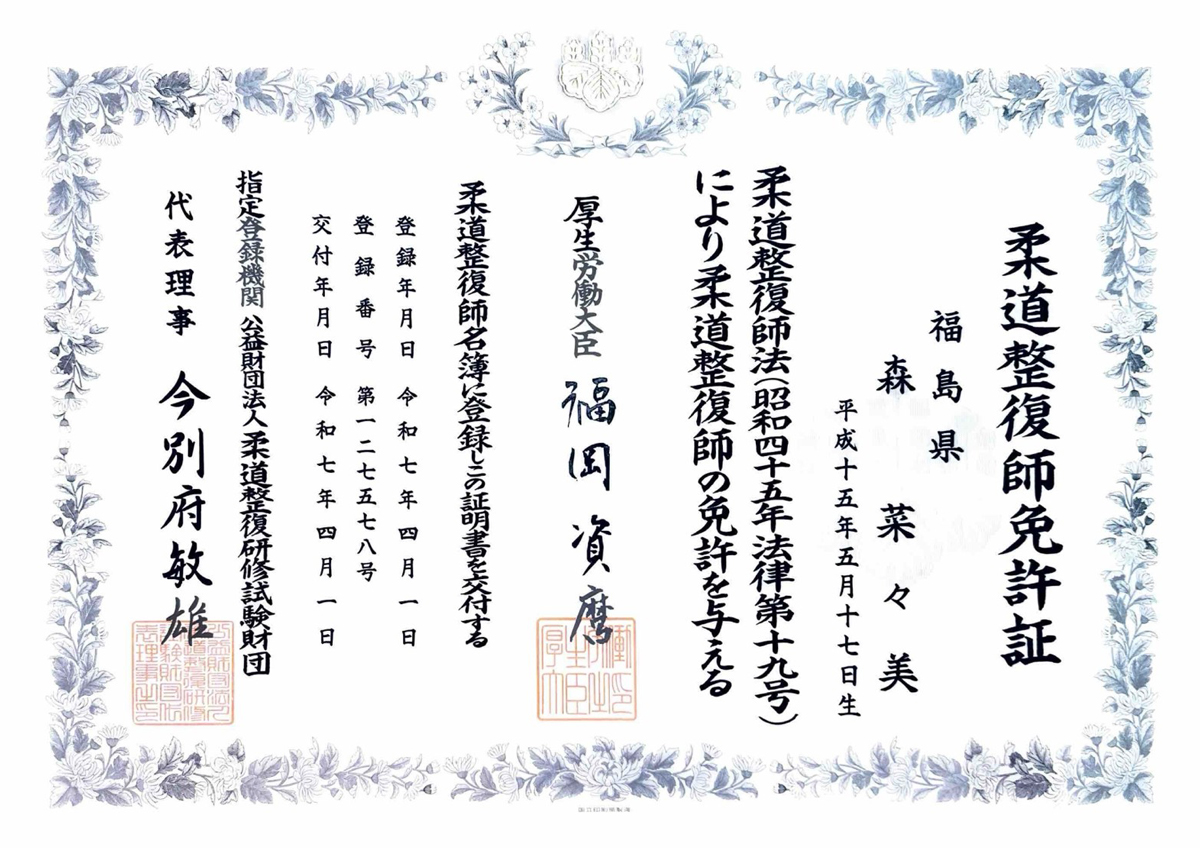 柔道整復師免許証
福島県
森菜々美
平成十五年五月十七日生
柔道整復師法（昭和四十五年法律第十九号）
により柔道整復師の免許を与える
厚生労働大臣 福岡資麿
柔道整復師名簿に登録しこの証明書を交付する
登録年月日 令和七年四月一日
登録番号 第一二七五七八号
交付年月日 令和七年四月一日
指定登録機関 公益財団法人柔道整復研修試験財団
代表理事 今別府敏雄